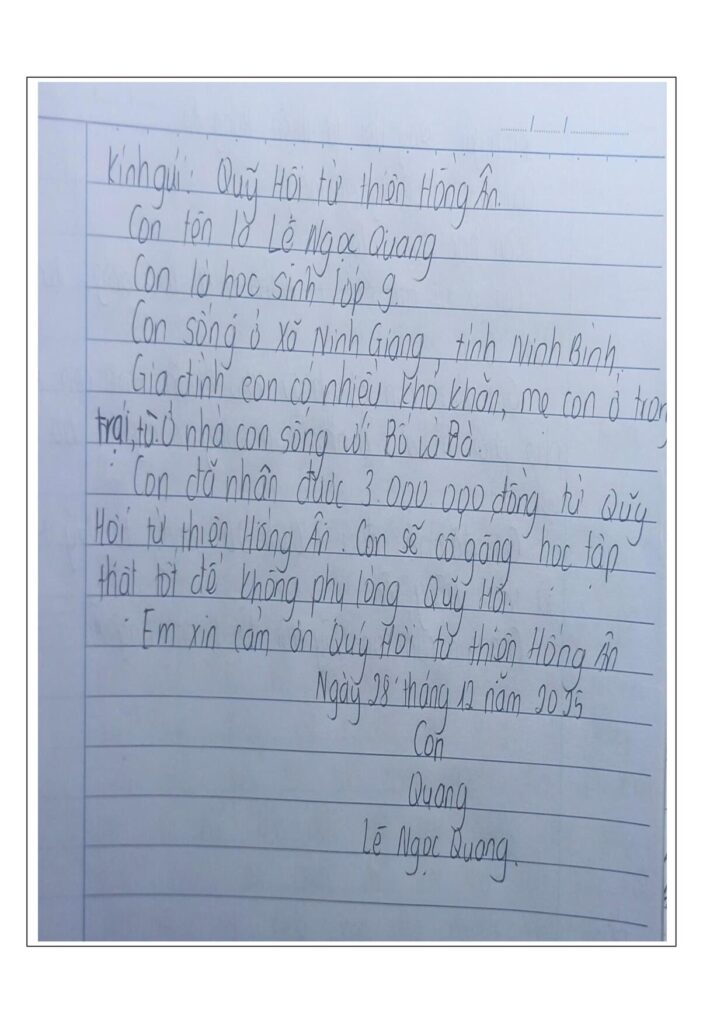 ...../...../..........
Kính gửi: Quỹ Hội từ thiện Hồng Ân.
Con tên là Lê Ngọc Quang
Con là học sinh lớp 9.
Con sống ở xã Ninh Giang, tỉnh Ninh Bình.
Gia đình con có nhiều khó khăn, mẹ con ở trong
trại, tù. Ở nhà con sống với Bố và Bà.
Con đã nhận được 3.000.000 đồng từ Quỹ
Hội từ thiện Hồng Ân. Con sẽ cố gắng học tập
thật tốt để không phụ lòng Quỹ Hội.
Em xin cảm ơn Quý Hội từ thiện Hồng Ân
Ngày 28 tháng 12 năm 2025
Con
Quang
Lê Ngọc Quang.